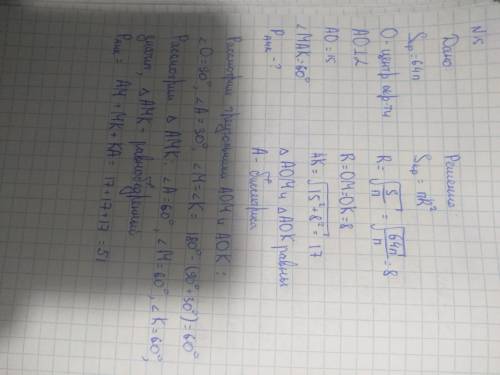 N15
Дано
Sкр=64π
O-центр окр-ти
AO⊥L
AO=15
∠MAK=60°
Pамк-?
Решение
Sкр=πR²
R=√S/π=√64π/π=8
R=OM=OK=8
AK=√15²+8²=17
△AOM и △AOK равны
A-биссектриса
Рассмотрим треугольники AOM и AOK:
∠O=90°, ∠A=30°, ∠M=∠K=180°-(90°+30°)=60°
Рассмотрим △AMK: ∠A=60°, ∠M=60°, ∠K=60°,
значит, △AMK-равносторонний
Pамк=AM+MK+KA=17+17+17=51